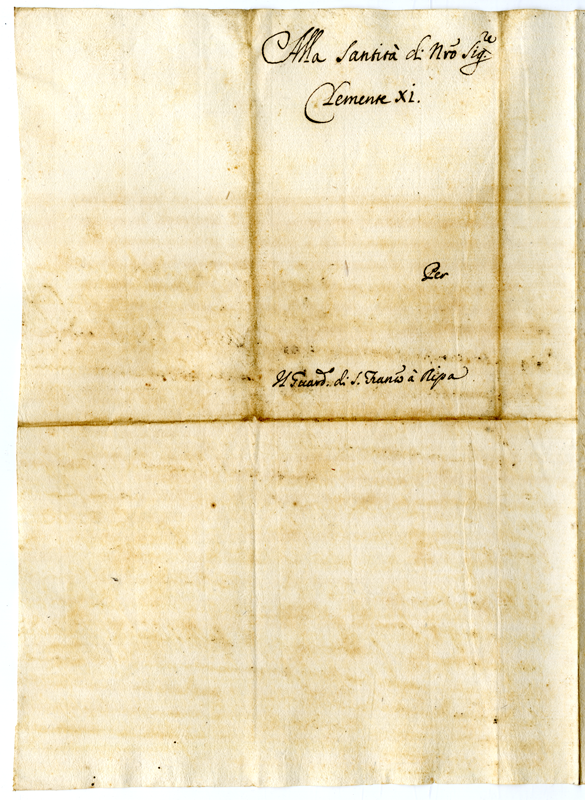 Alla Santità di Nrō Sig.re
Clemente XI.
Per
Il Guard.º di S. Franc̄o à Ripa